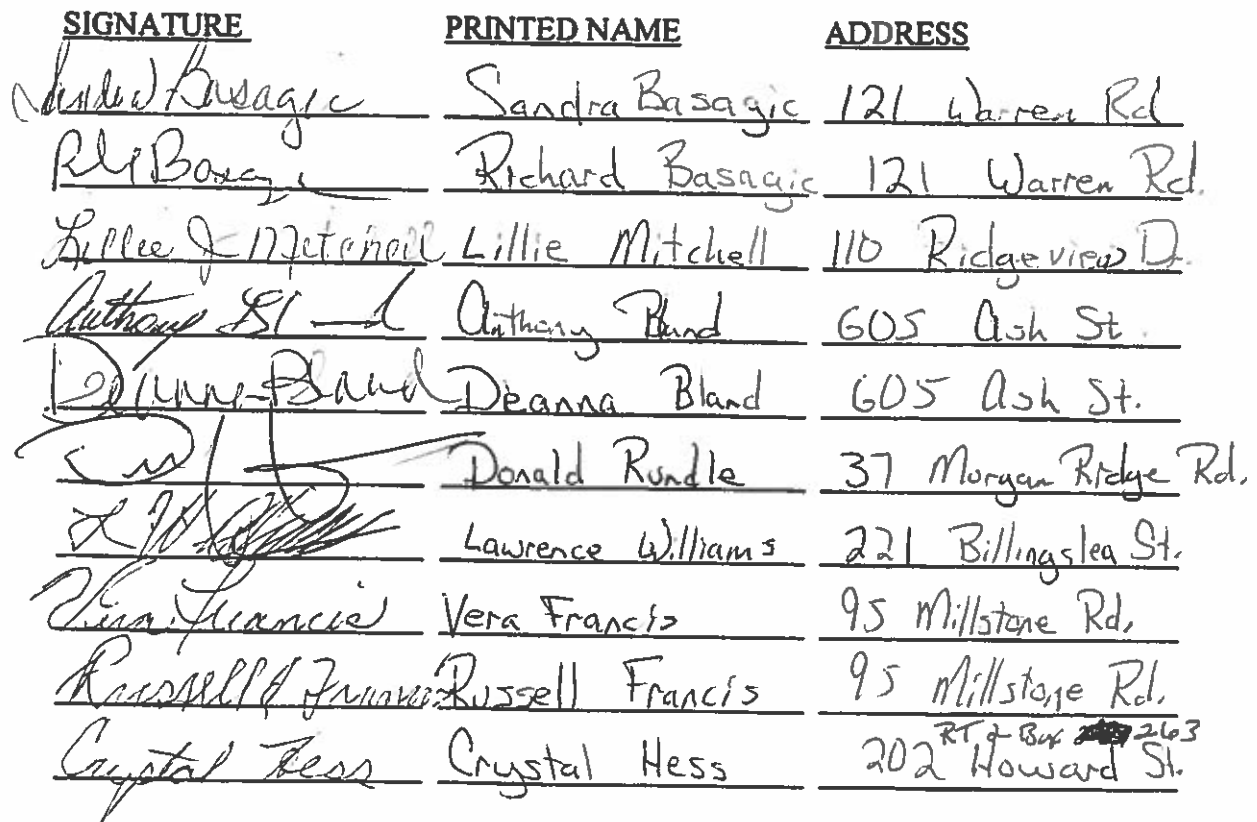 SIGNATURE PRINTED NAME ADDRESS
Sandra Basagic Sandra Basagic 121 Warren Rd
Basagic Richard Basagic 121 Warren Rd.
Lillie J Mitchell Lillie Mitchell 110 Ridgeview D.
Anthony Bl d Anthony Bland 605 Ash St
Deanna Bland Deanna Bland 605 Ash St.
Donald Rundle 37 Morgan Ridge Rd.
L W Lawrence Williams 221 Billingslea St.
Vera Francis Vera Francis 95 Millstone Rd.
Russell Francis Russell Francis 95 Millstone Rd.
RT 2 Box 263
Crystal Hess Crystal Hess 202 Howard St.